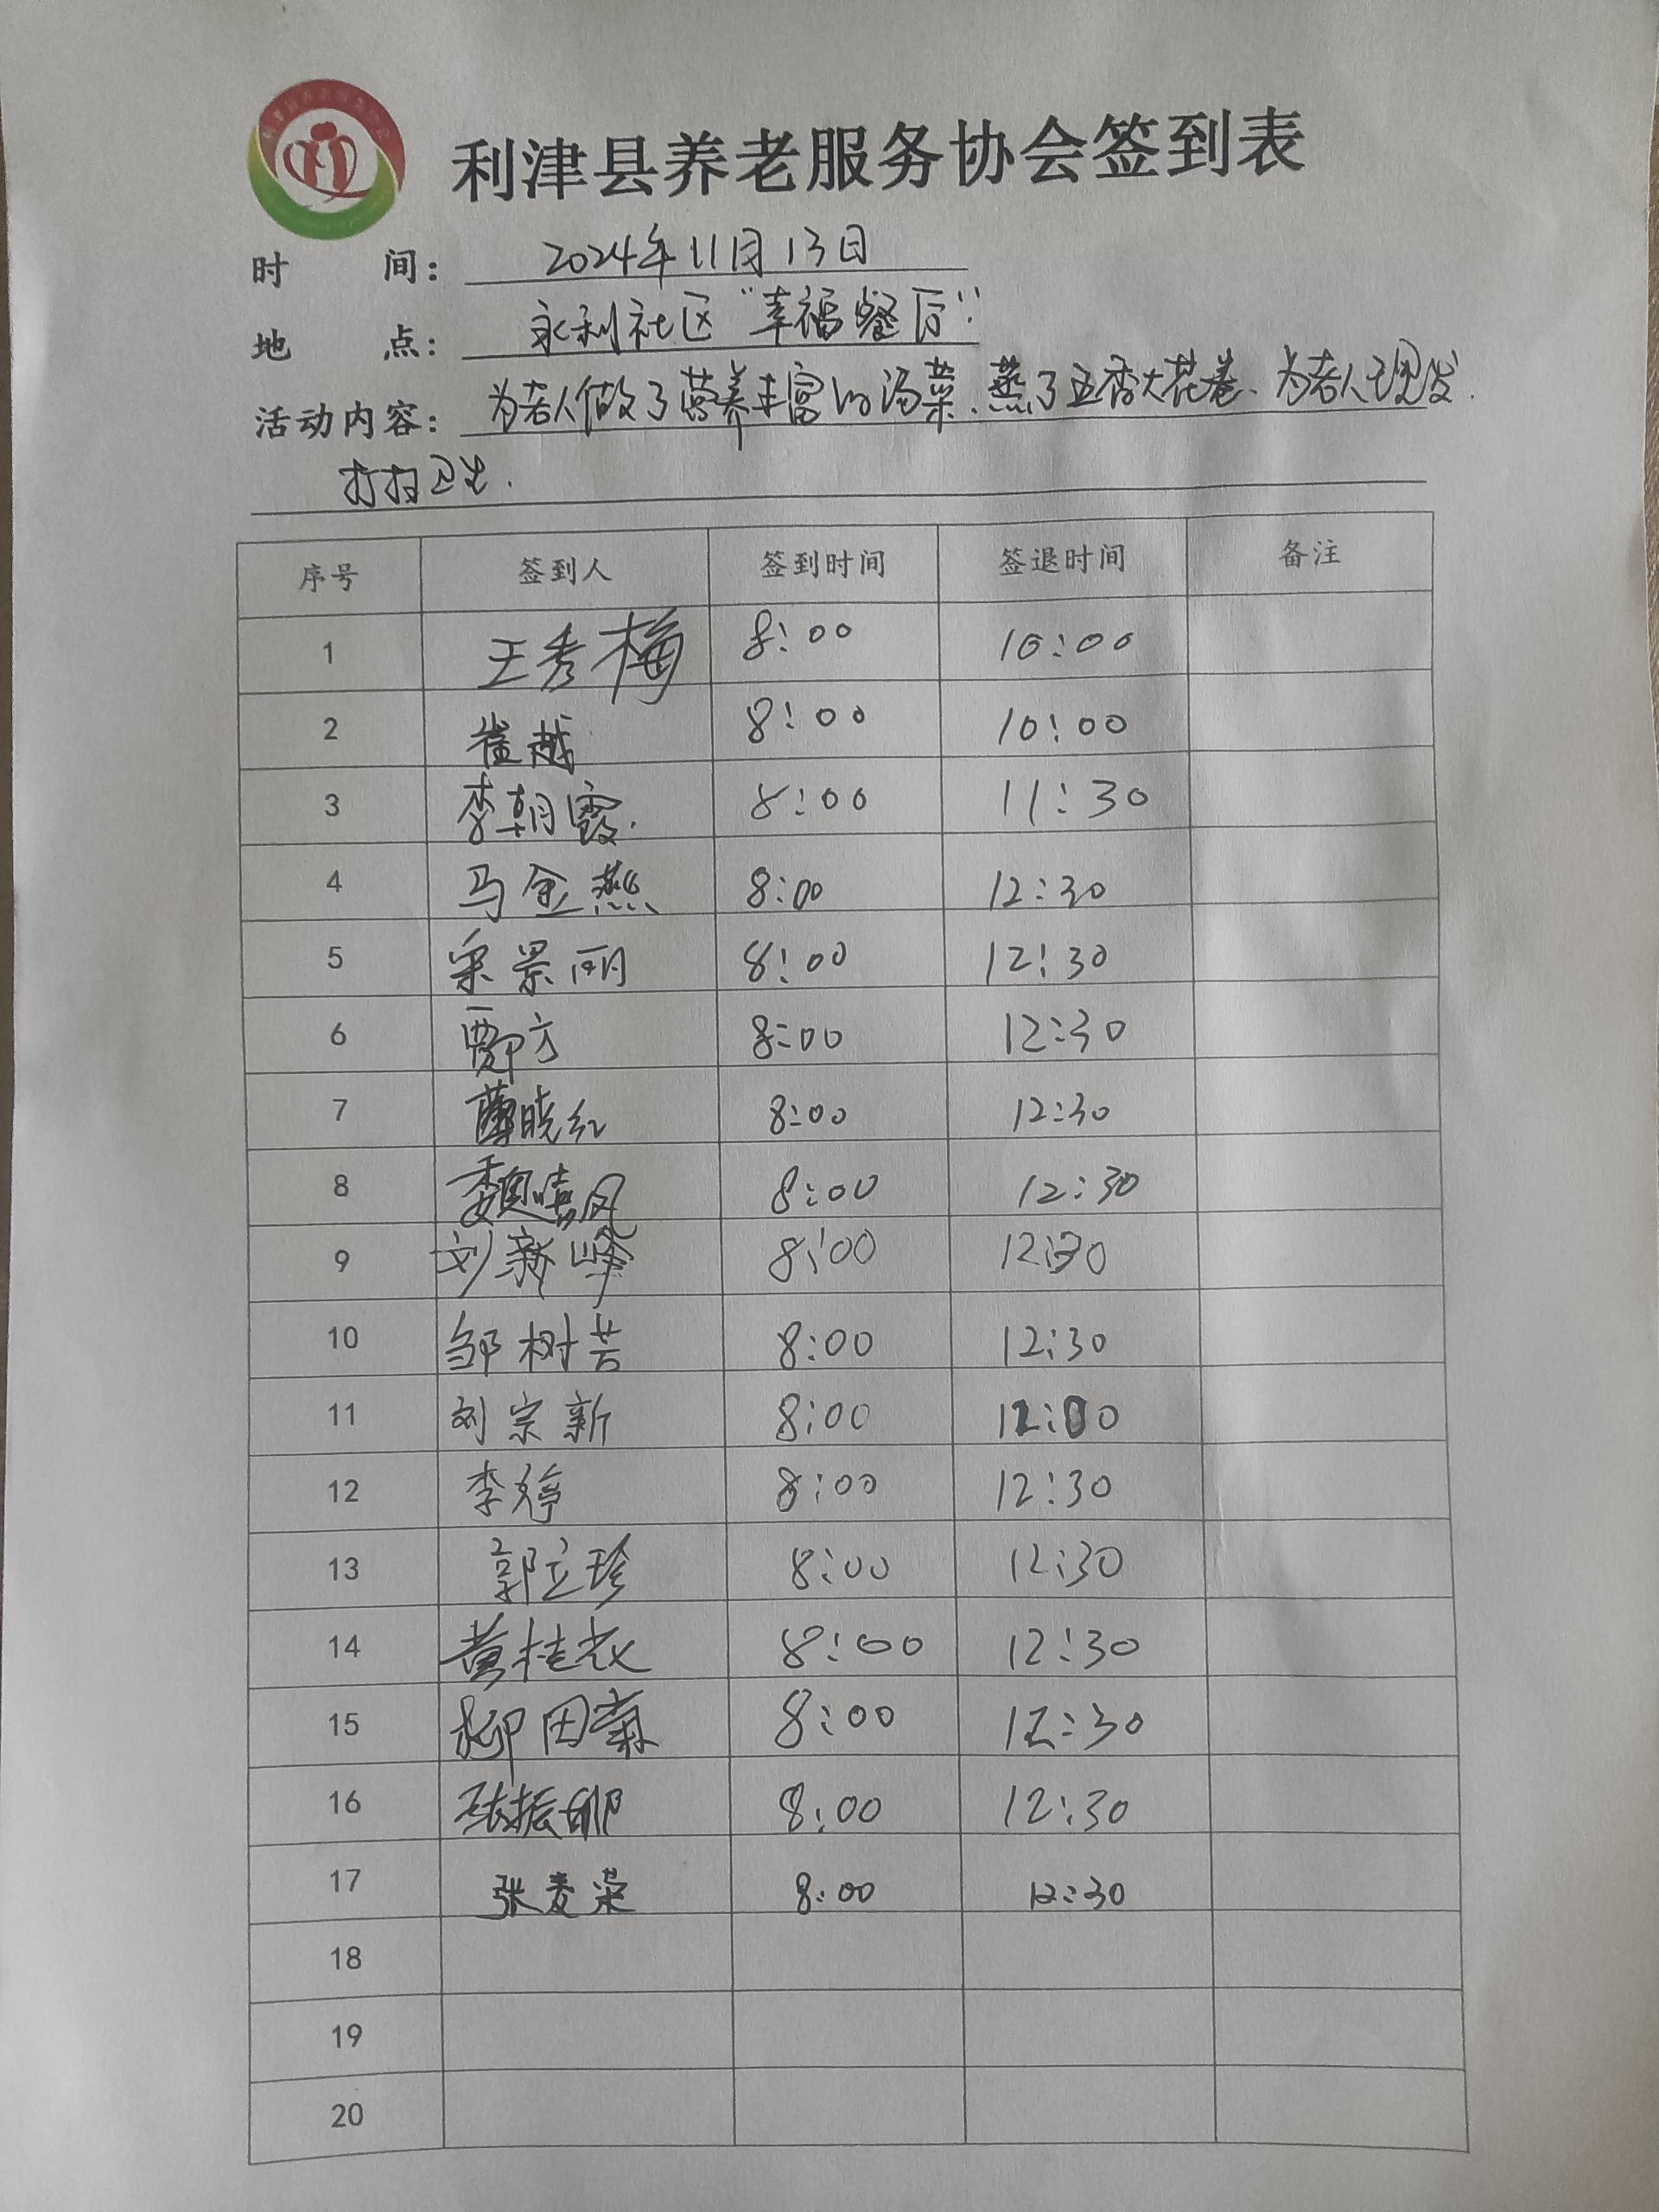 利津县养老服务协会签到表
时 间： 2024年11月13日
地 点： 永利社区“幸福餐厅”
活动内容： 为老人做了营养丰富的汤菜、蒸了五香大花卷、为老人理发.
打扫卫生.
序号 签到人 签到时间 签退时间 备注
1 王秀梅 8:00 10:00
2 崔越 8:00 10:00
3 李朝霞. 8:00 11:30
4 马金燕 8:00 12:30
5 景丽 8:00 12:30
6 方 8:00 12:30
7 薄晓红 8:00 12:30
8 魏 凤 8:00 12:30
9 刘新峰 8:00 12:30
10 邹树芸 8:00 12:30
11 刘宗新 8:00 12:00
12 李婷 8:00 12:30
13 郭立珍 8:00 12:30
14 黄桂 8:00 12:30
15 柳田菊 8:00 12:30
16 张振 8:00 12:30
17 张麦荣 8:00 12:30
18
19
20